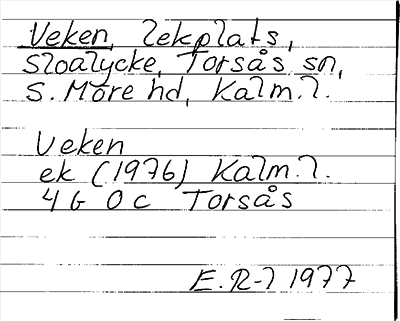 Veken, lekplats,
Sloalycke, Torsås sn,
S. Möre hd, Kalm. l.
Veken
ek (1976) Kalm. l.
4 G 0 c Torsås
E. R-l 1977